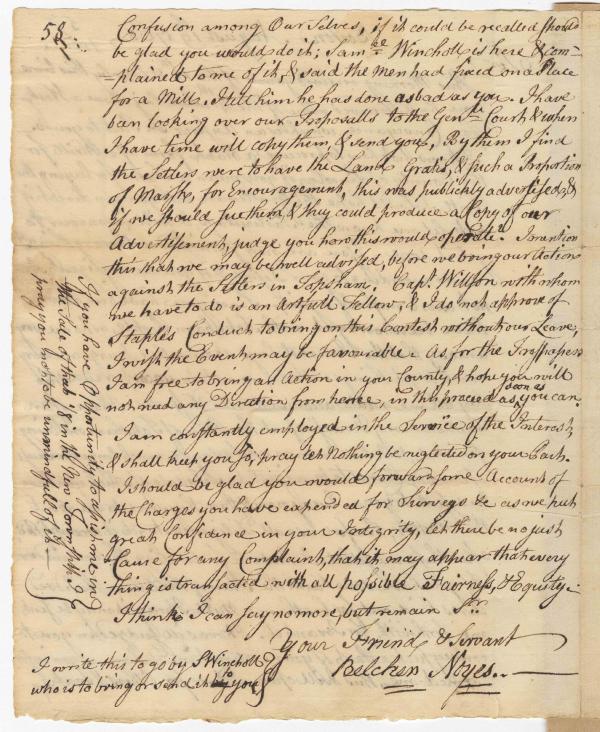 58
Confusion among Our Selves, if it could be recalled should
be glad you would do it; Sam.ll Winchell is here & com=
=plained to me of it, & said the Men had fixed on a Place
for a Mill. I tell him he has done as bad as you. I have
ben looking over our Proposalls to the Gen.ll Court & when
I have time will copy them, & send you, By them I find
the Setlers were to have the Land Gratis, & such a Proportion
of Marsh, for Encouragement, this was publickly advertised, &
if we should sue them, & they could produce a Copy of our
Advertissement, judge you how this would operate. I mention
this that we may be well advised, before we bring our Action
against the Setlers in Topsham. Capt. Willson with whom
we have to do is an Artfull Fellow, & I do not approve of
Staple's Conduct to bring on this Contest without our Leave,
I wish the Event may be favourable. As for the Trespasses
I am free to bring an Action in your County, & hope you will
not need any Direction from hence, in this proceed as soon as you can.
I am constantly employed in the Service of the Interest,
& shall keep you so, pray let Nothing be neglected on your Part.
I should be glad you would forward some Account of
the Charges you have expended for Surveys &c as we put
great Confidence in your Integrity, let there be no just
Cause for any Complaint, that it may appear that every
thing is transacted with all possible Fairness, & Equity.
I think I can say no more, but remain Sr.
Your Friend & Servant
Belcher Noyes.
I write this to go by S Winchell
who is to bring or send it to you
If you have Opportunity to assist me in
the Sale of that in the New Town
pray you not to be unmindfull of it